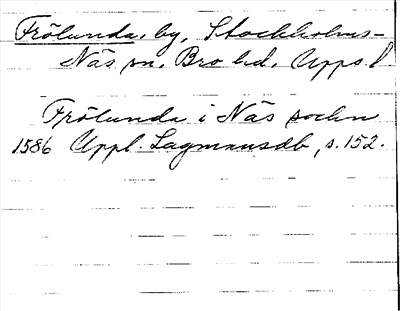 Frölunda, by, Stockholms-
Näs sn, Bro hd, Upps. l
Frölunda i Näs sochn
1586 Uppl. Lagmansdb, s. 152.